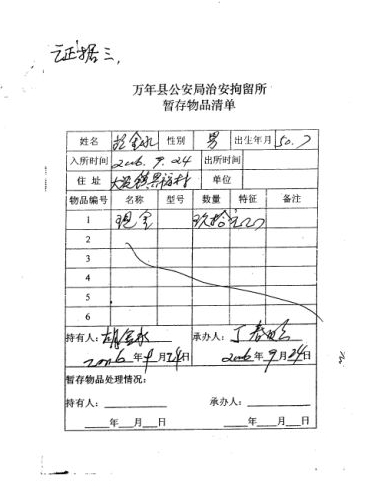 证据三、
万年县公安局治安拘留所
暂存物品清单
姓名 金水 性别 男 出生年月 50.7
入所时间 2006.9.24 出所时间
住址 村 单位
物品编号 名称 型号 数量 特征 备注
1 现金 玖拾元
2
3
4
5
6
持有人：胡金水 承办人：丁春
2006年9月24日 2006年9月24日
暂存物品处理情况：
持有人： 承办人：
年 月 日 年 月 日